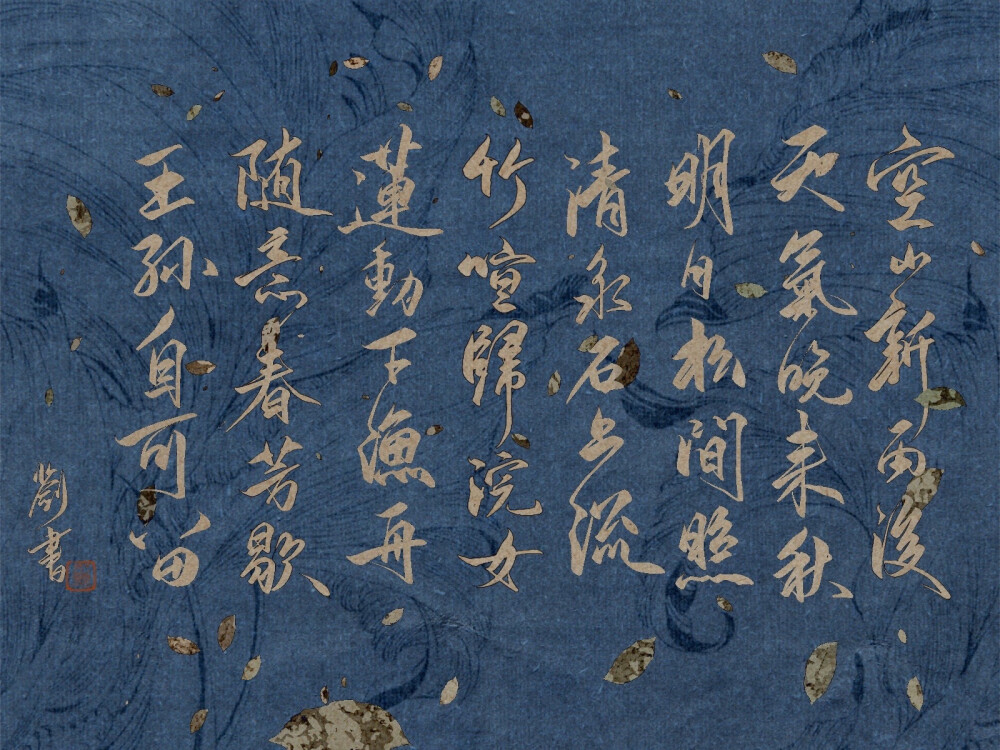 空山新雨後
天氣晚来秋
明月松間照
清泉石上流
竹喧歸浣女
蓮動下漁舟
随意春芳歇
王孫自可留
劉書